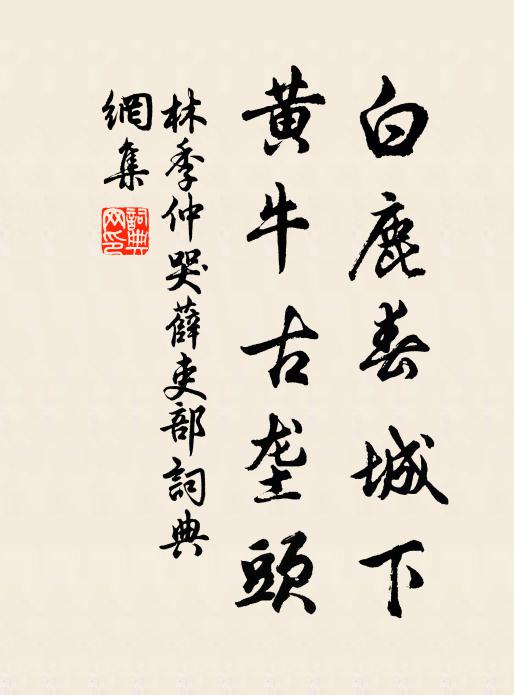 白鹿春城下
黄牛古垄頭
林季仲哭薛吏部詞典
網集
詞典
网印